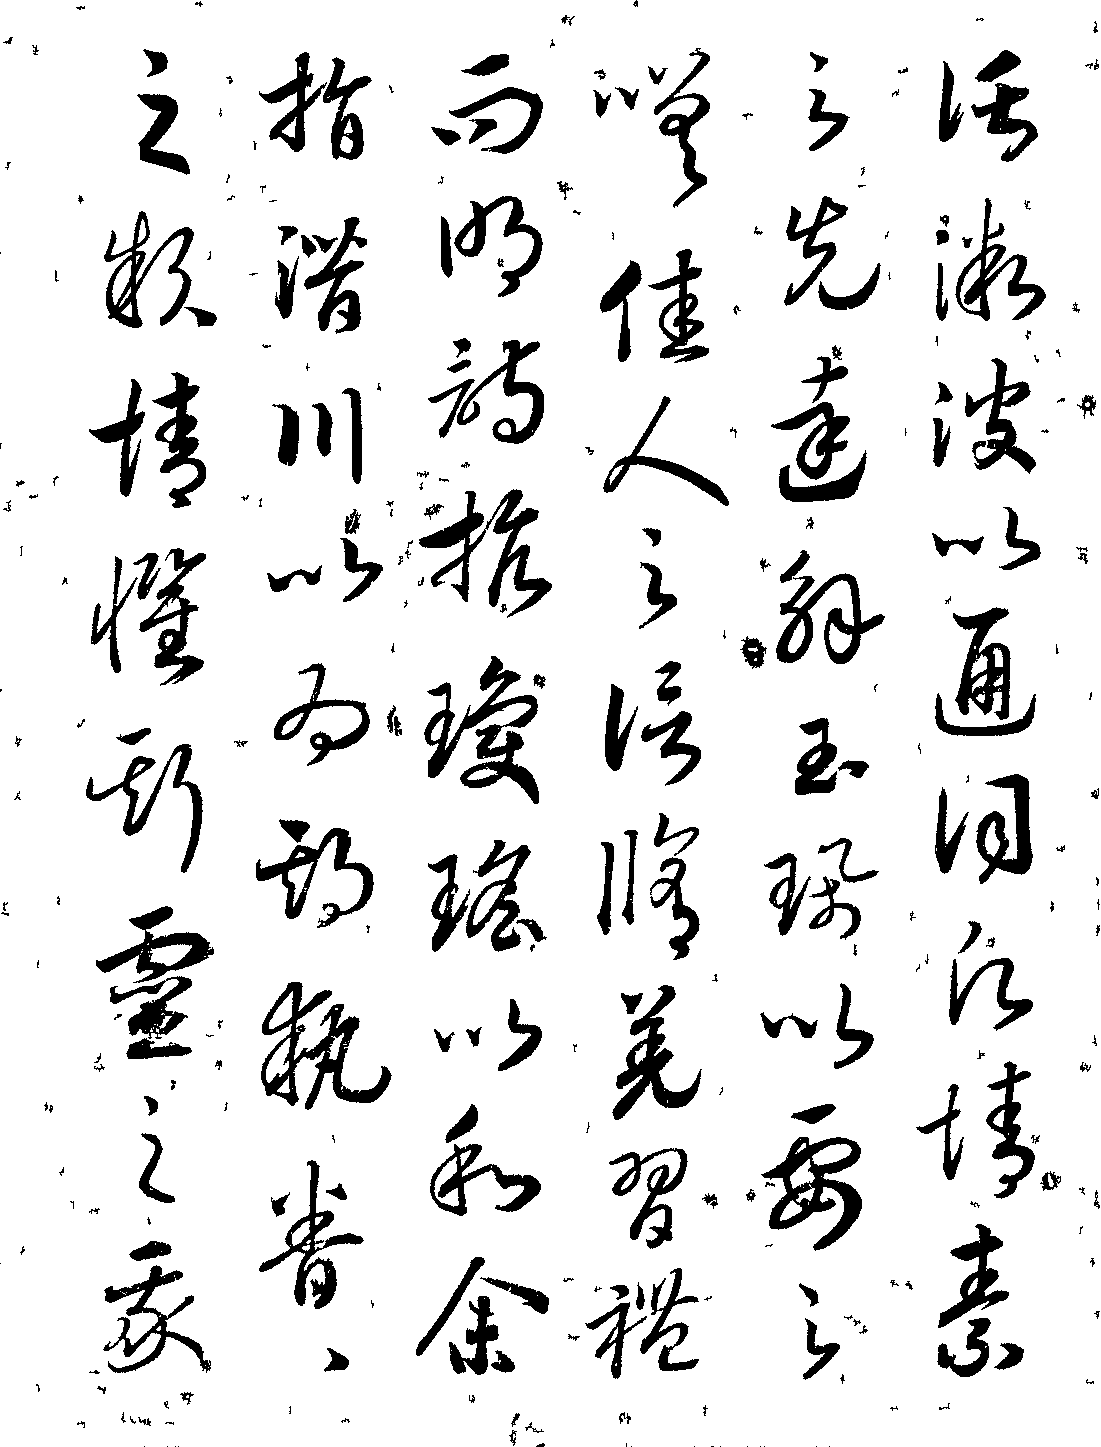 託微波以通詞願情素
之先達解玉珮以要之
嗟佳人之信脩羌習禮
而明詩抗瓊瑤以和余
指潛川以為期執眷〻
之款情懼斯靈之我